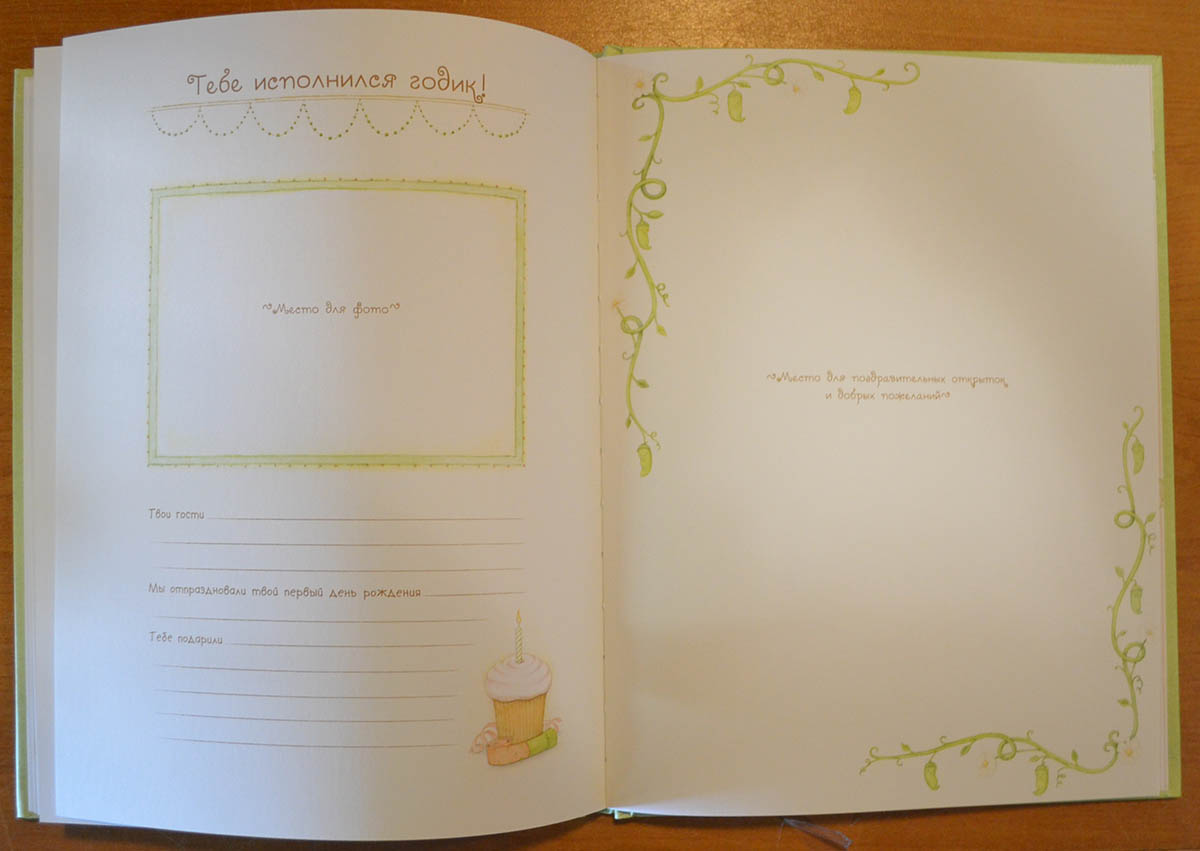 Тебе исполнился годик!
~Место для фото~
Твои гости
Мы отпраздновали твой первый день рождения
Тебе подарили
~Место для поздравительных открыток
и добрых пожеланий~